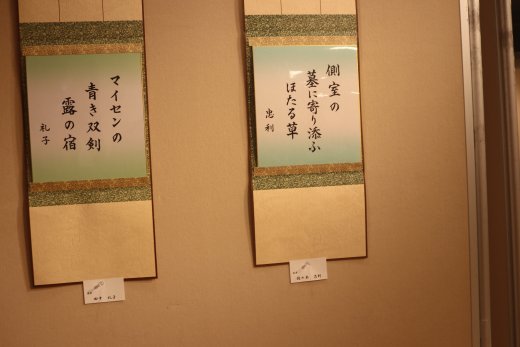 側室の
墓に寄り添ふ
ほたる草
忠利
マイセンの
青き双剣
露の宿
礼子